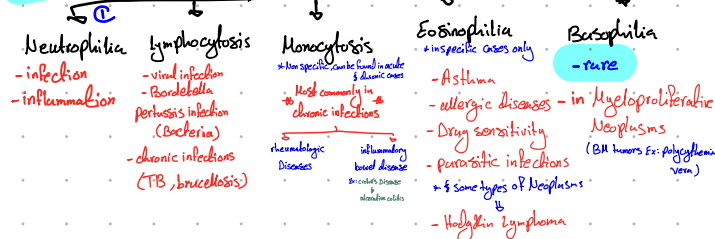 ①
Neutrophilia
- infection
- inflammation
Lymphocytosis
- viral infection
- Bordetella
pertussis infection
(Bacteria)
- chronic infections
(TB, brucellosis)
Monocytosis
* Non specific, can be found in acute
& chronic cases
* Most commonly in *
chronic infections
rheumatologic
Diseases
inflammatory
bowel disease
Ex: crohn's Disease
&
ulcerative colitis
Eosinophilia
* in specific cases only
- Asthma
- allergic diseases
- Drug sensitivity
- parasitic infections
* & some types of Neoplasms
- Hodgkin Lymphoma
Basophilia
- rare
- in Myeloproliferative
Neoplasms
(BM tumors Ex: polycythemia
vera)